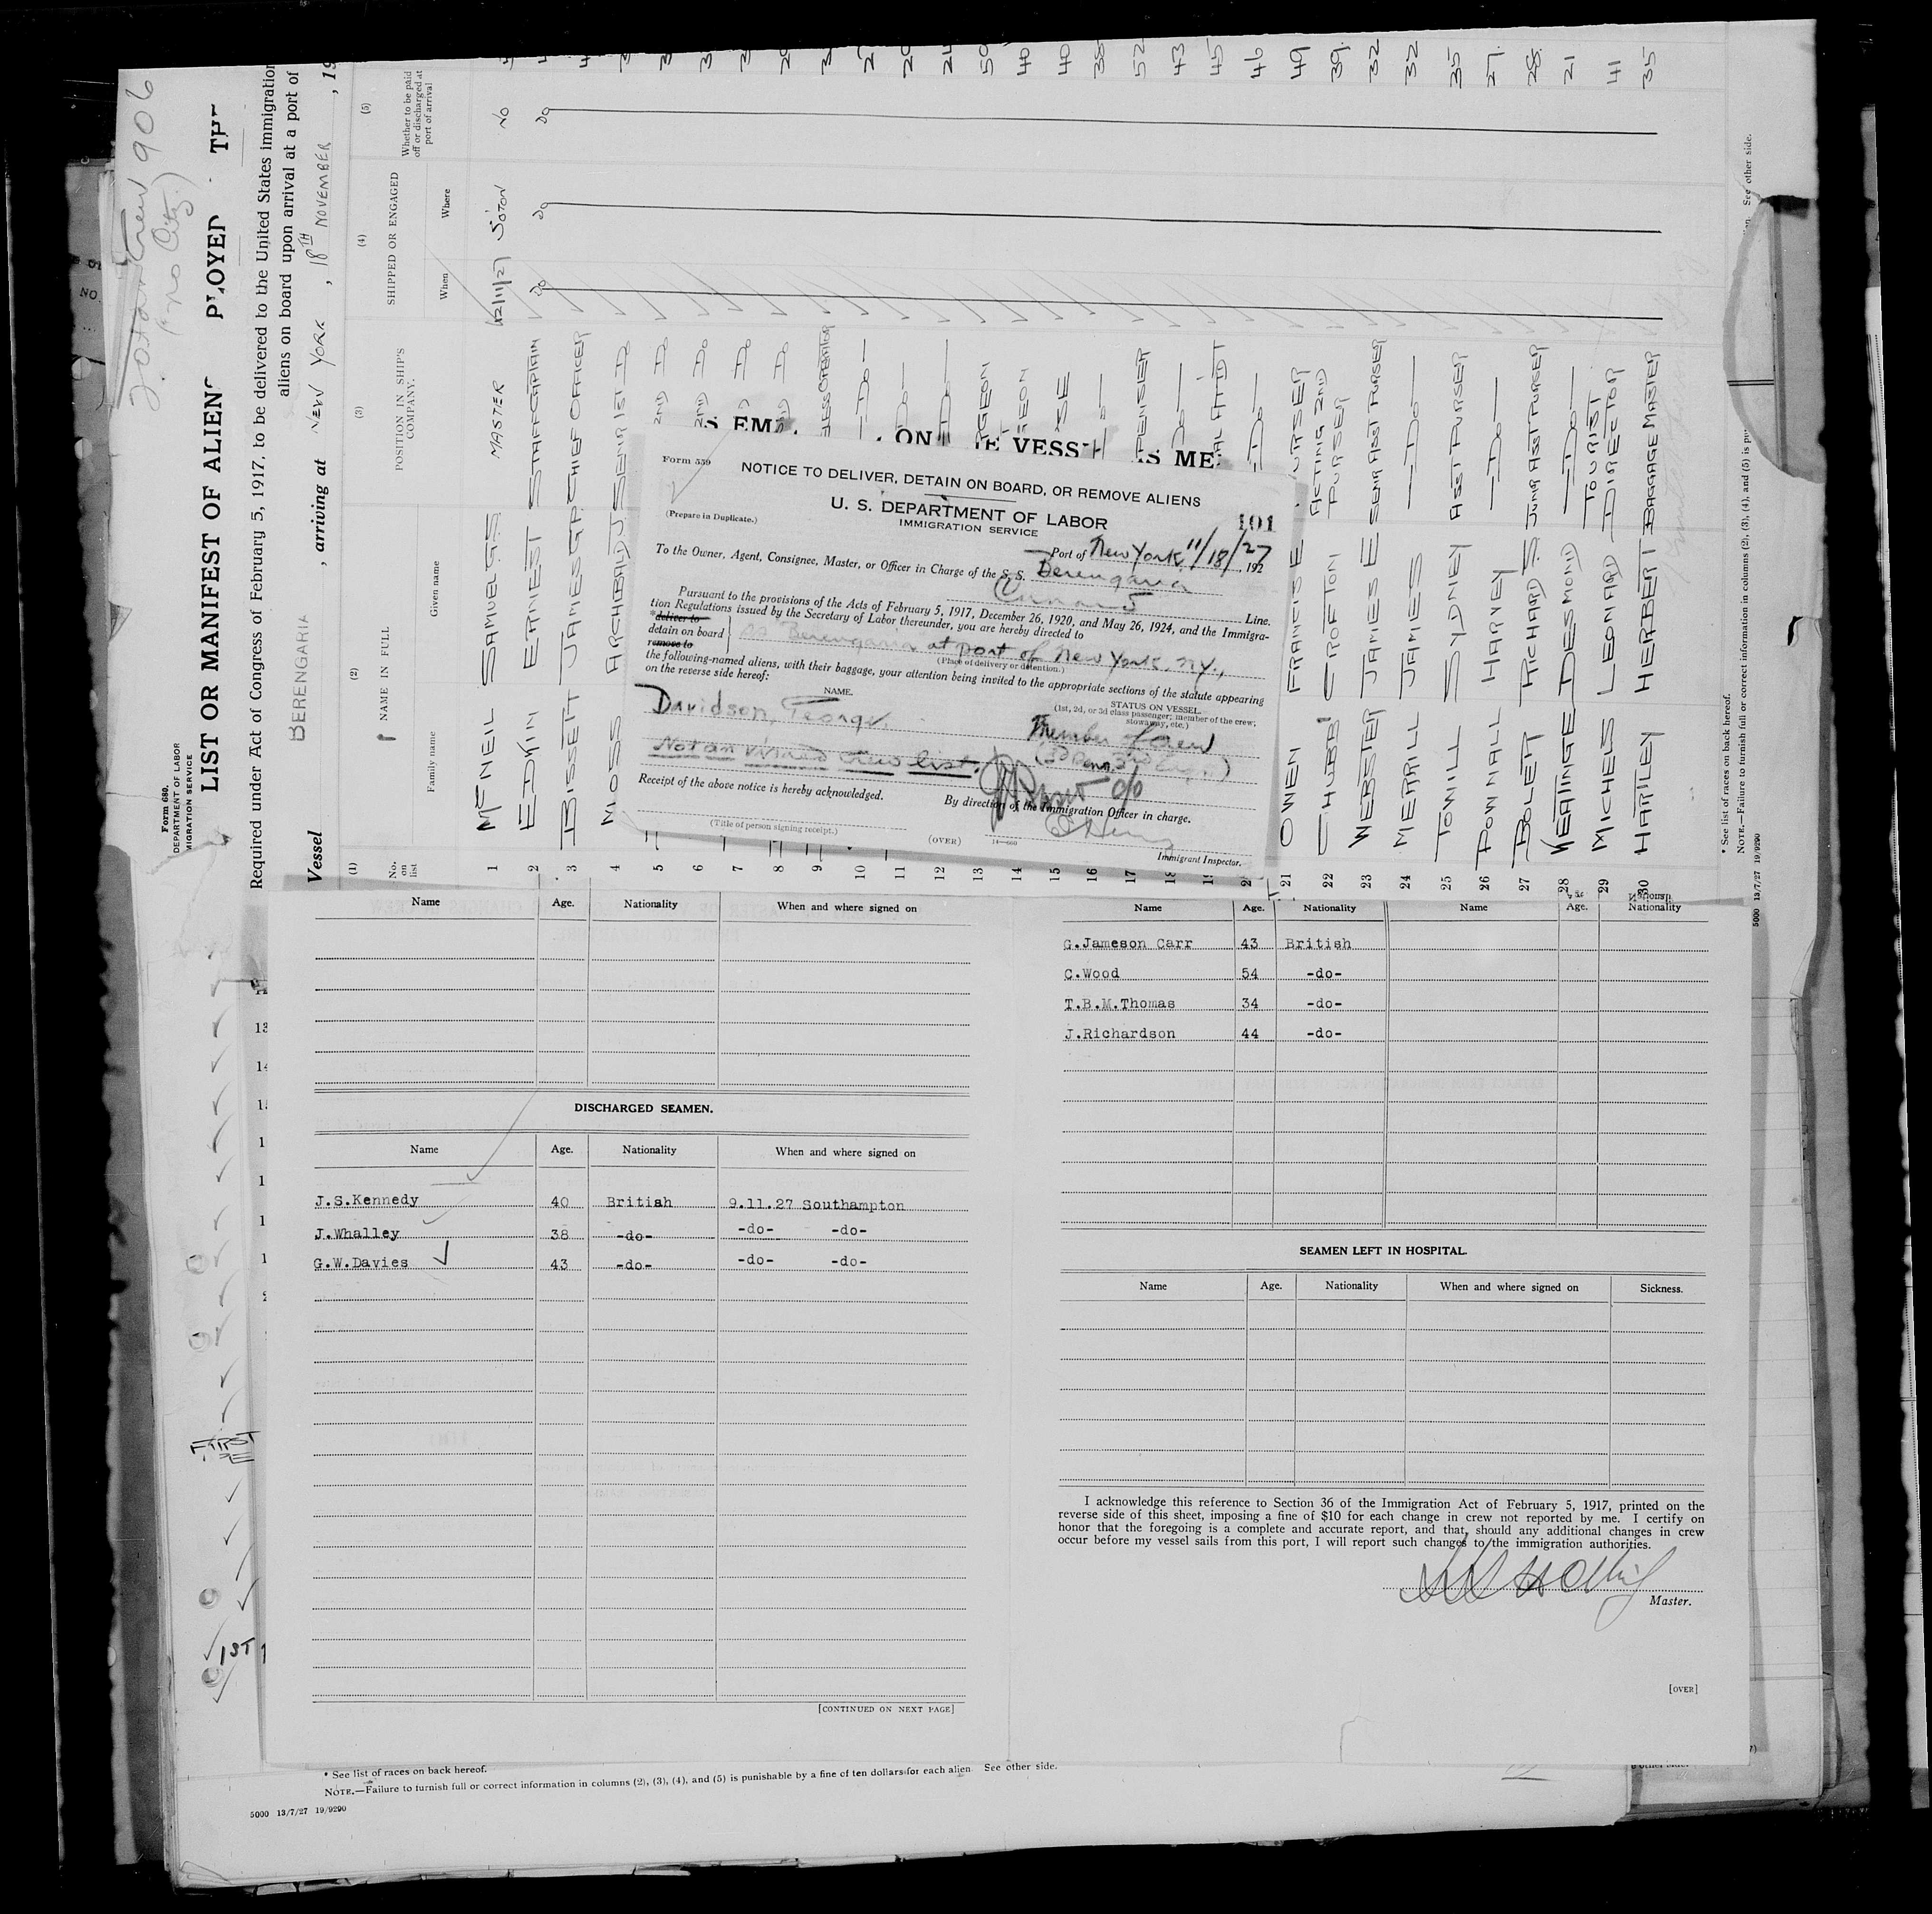 906
Form 680.
DEPARTMENT OF LABOR
MIGRATION SERVICE
LIST OR MANIFEST OF ALIEN PLOYED
Required under Act of Congress of February 5, 1917, to be delivered to the United States immigration
aliens on board upon arrival at a port of
Vessel BERENGARIA, arriving at NEW YORK, 18TH NOVEMBER, 19
(1) (2) (3) (4) (5)
No. on list
NAME IN FULL
Family name Given name
POSITION IN SHIP'S COMPANY.
SHIPPED OR ENGAGED
When Where
Whether to be paid off or discharged at port of arrival
1 McNEIL SAMUEL G.S. MASTER 12/11/27 S'OTON NO
2 EDKIN ERNEST STAFF CAPTAIN DO DO DO
3 BISSETT JAMES G.P. CHIEF OFFICER
4 MOSS ARCHIBALD J SENR 1ST DO
5 2ND DO
6 DO
7 DO
8 DO
9
10 —DO—
11 DO—
12
13
14
15
16
17
18
20 —DO— 46
21 OWEN FRANCIS E. PURSER 49
22 CHUBB CROFTON ACTING 2ND PURSER 39
23 WEBSTER JAMES E SENR ASST PURSER 32
24 MERRILL JAMES —DO— 32
25 TOWILL SYDNEY ASST PURSER 35
26 POWNALL HARVEY —DO— 27
27 BOLER RICHARD S. JUNR ASST PURSER 28
28 DESMOND —DO— 21
29 MICHELS LEONARD TOURIST DIRECTOR 41
30 HARTLEY HERBERT BAGGAGE MASTER 35
* See list of races on back hereof.
NOTE.—Failure to furnish full or correct information in columns (2), (3), (4), and (5) is pu
See other side.
5000 13/7/27 19/9290
S EM ON VESS S ME
Form 559
NOTICE TO DELIVER, DETAIN ON BOARD, OR REMOVE ALIENS
U. S. DEPARTMENT OF LABOR
IMMIGRATION SERVICE
101
(Prepare in Duplicate.)
Port of New York 11/18/27, 192
To the Owner, Agent, Consignee, Master, or Officer in Charge of the S. S. Berengaria
Cunard Line.
Pursuant to the provisions of the Acts of February 5, 1917, December 26, 1920, and May 26, 1924, and the Immigra-
tion Regulations issued by the Secretary of Labor thereunder, you are hereby directed to
*deliver to
detain on board
remove to
SS Berengaria at port of New York, NY.,
(Place of delivery or detention.)
the following-named aliens, with their baggage, your attention being invited to the appropriate sections of the statute appearing
on the reverse side hereof:
NAME.
STATUS ON VESSEL.
(1st, 2d, or 3d class passenger; member of the crew; stowaway, etc.)
Davidson, George. Member of Crew
Not on visaed crew list.
Receipt of the above notice is hereby acknowledged.
By direction of the Immigration Officer in charge.
(Title of person signing receipt.)
(OVER)
14—660
Immigrant Inspector.
Name Age. Nationality When and where signed on
DISCHARGED SEAMEN.
Name Age. Nationality When and where signed on
J.S.Kennedy 40 British 9.11.27 Southampton
J.Whalley 38 -do- -do- -do-
G.W.Davies 43 -do- -do- -do-
[CONTINUED ON NEXT PAGE]
Name Age. Nationality Name Age. Nationality
G.Jameson Carr 43 British
C.Wood 54 -do-
T.B.M.Thomas 34 -do-
J.Richardson 44 -do-
SEAMEN LEFT IN HOSPITAL.
Name Age. Nationality When and where signed on Sickness.
I acknowledge this reference to Section 36 of the Immigration Act of February 5, 1917, printed on the
reverse side of this sheet, imposing a fine of $10 for each change in crew not reported by me. I certify on
honor that the foregoing is a complete and accurate report, and that, should any additional changes in crew
occur before my vessel sails from this port, I will report such changes to the immigration authorities.
Master.
[OVER]
FIRST
1ST
* See list of races on back hereof.
NOTE.—Failure to furnish full or correct information in columns (2), (3), (4), and (5) is punishable by a fine of ten dollars for each alien See other side.
5000 13/7/27 19/9290